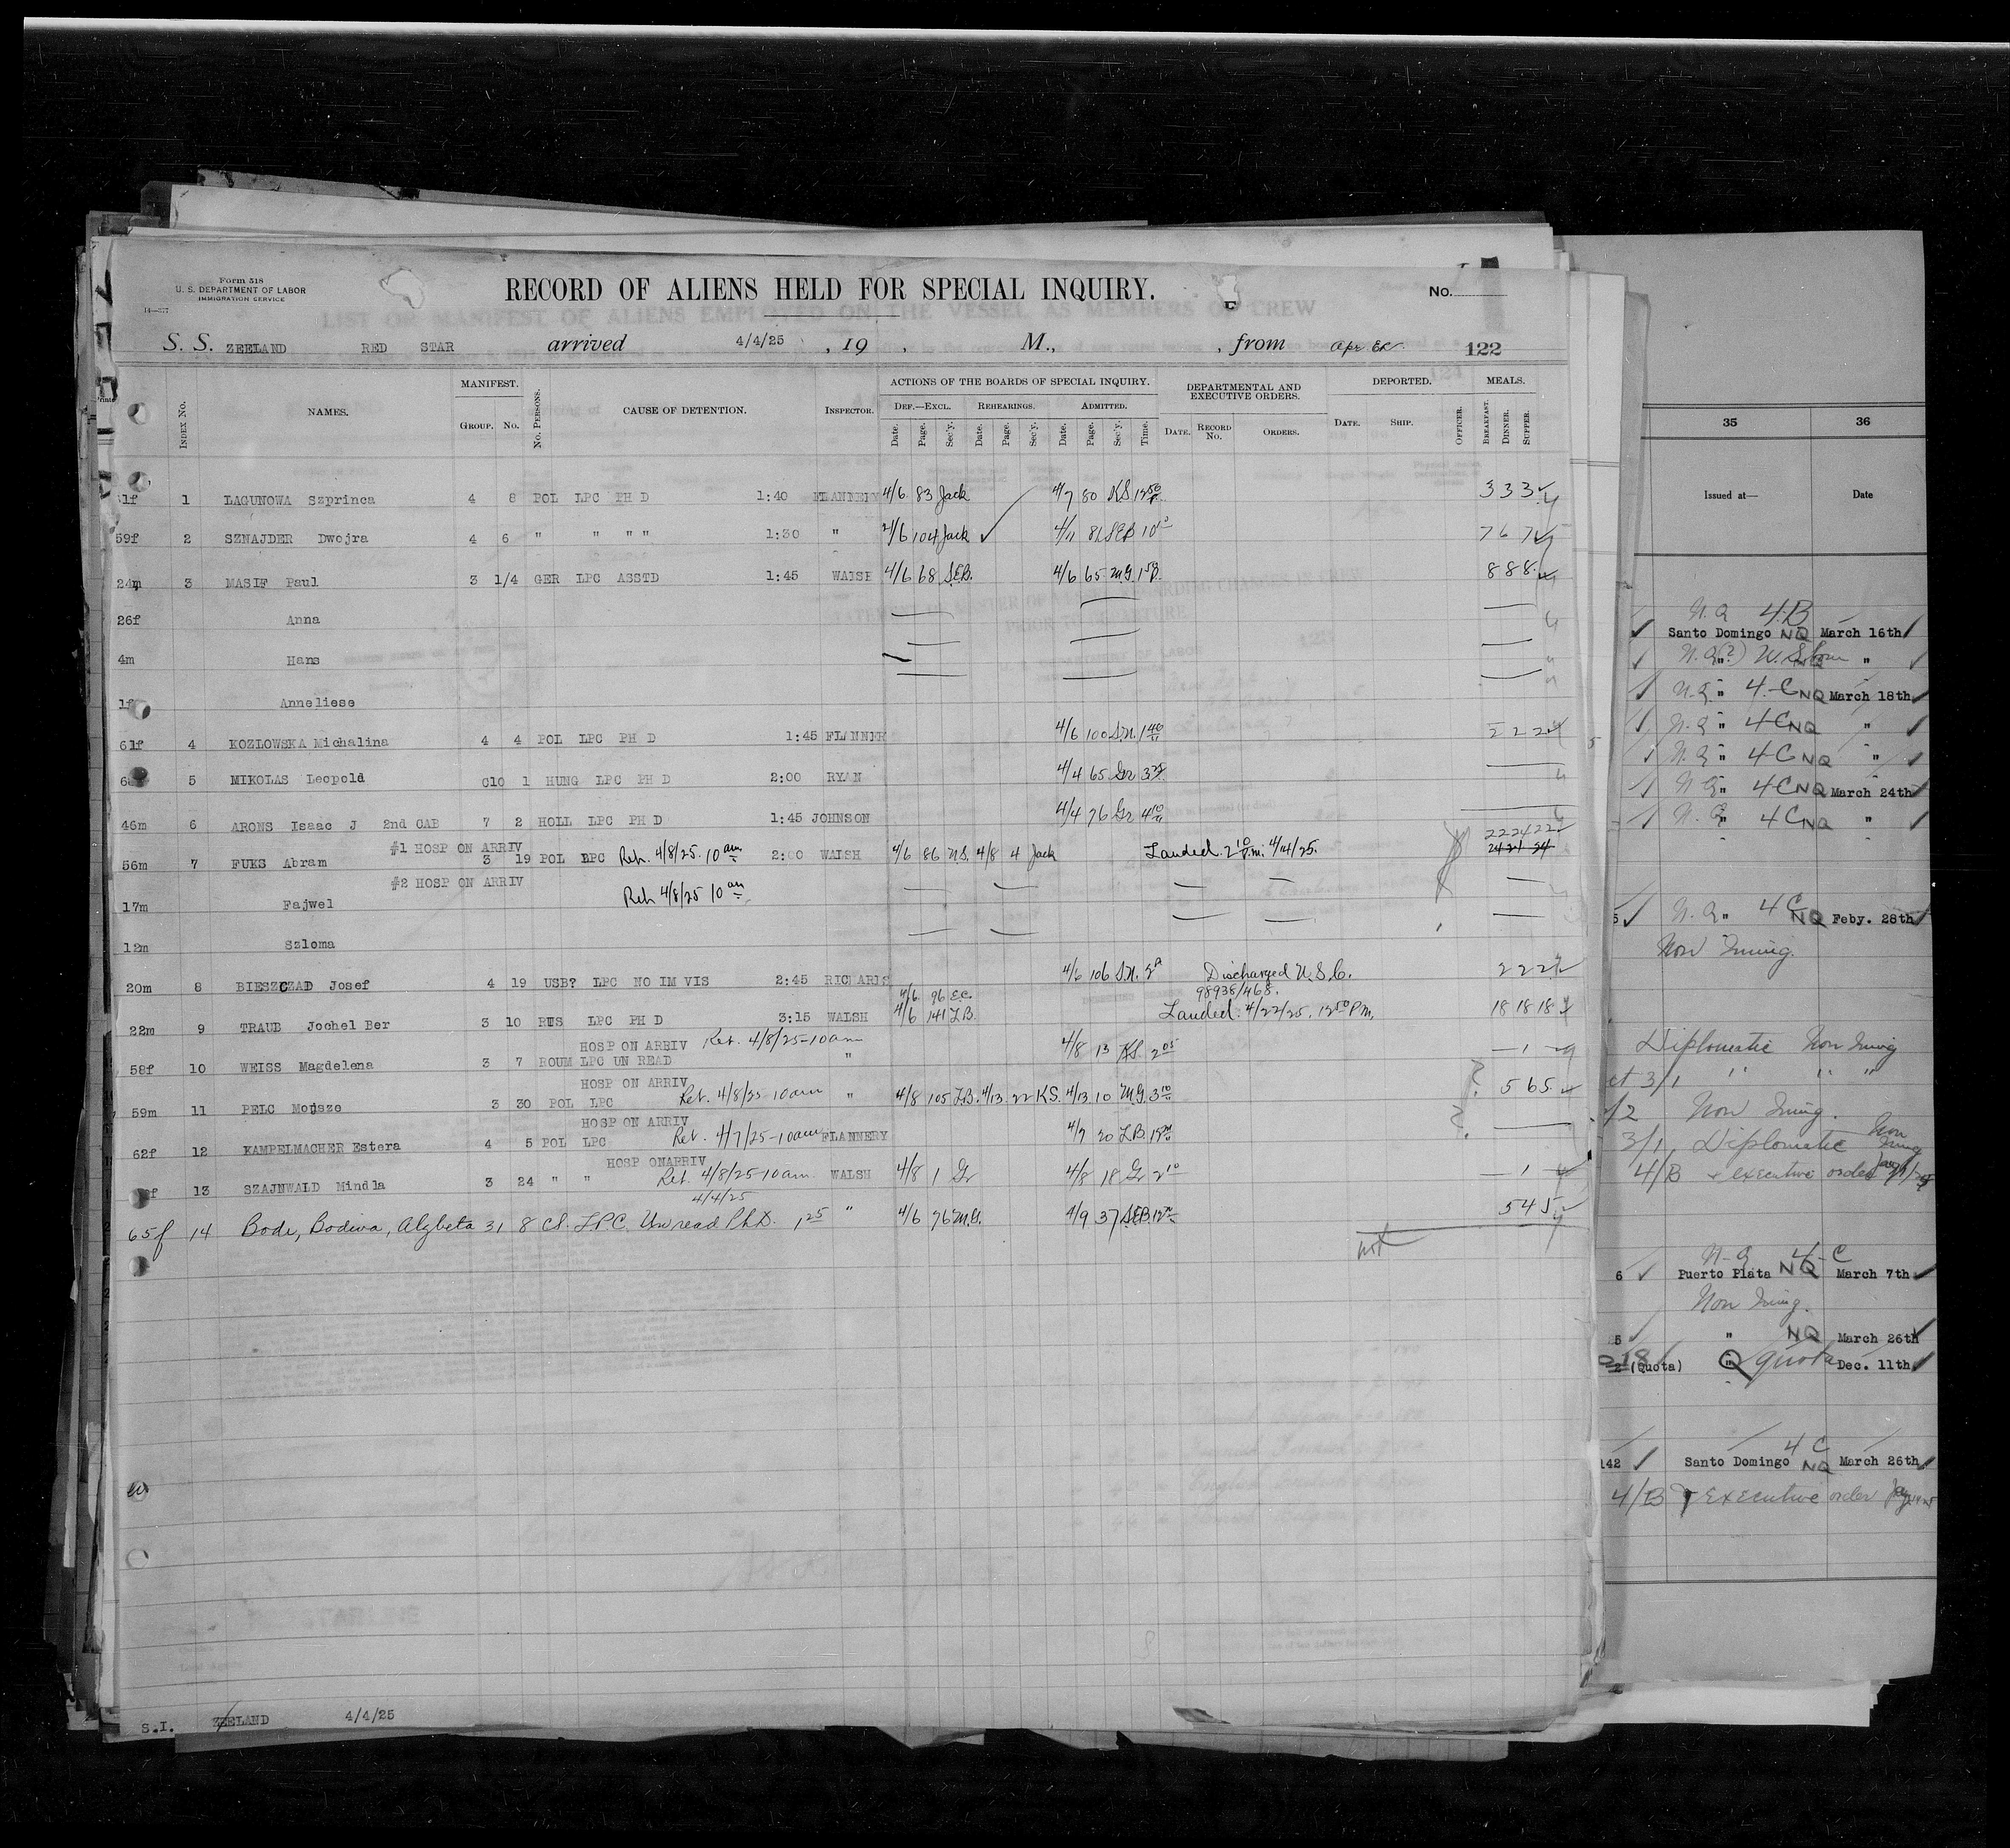 Form 518
U. S. DEPARTMENT OF LABOR
IMMIGRATION SERVICE
14—377
RECORD OF ALIENS HELD FOR SPECIAL INQUIRY.
No.
S. S. ZEELAND RED STAR arrived 4/4/25 , 19 , M., , from
122
INDEX No. NAMES. MANIFEST. GROUP. No. No. PERSONS. CAUSE OF DETENTION. INSPECTOR.
ACTIONS OF THE BOARDS OF SPECIAL INQUIRY. DEF.—EXCL. REHEARINGS. ADMITTED.
Date. Page. Sec'y. Date. Page. Sec'y. Date. Page. Sec'y. Time.
DEPARTMENTAL AND EXECUTIVE ORDERS. DATE. RECORD No. ORDERS.
DEPORTED. DATE. SHIP. OFFICER. MEALS. BREAKFAST. DINNER. SUPPER.
1 LAGUNOWA Szprinca 4 8 POL LPC PH D 1:40 FLANNERY 4/6 83 Jack 4/7 80 KS 12 50 P. 3 3 3
59f 2 SZNAJDER Dwojra 4 6 " " " " 1:30 " 4/6 104 Jack 4/11 81 SEB 10 7 6 7
24m 3 MASIF Paul 3 1/4 GER LPC ASSTD 1:45 WALSH 4/6 68 S.E.B. 4/6 65 M.G. 8 8 8
26f Anna
4m Hans
1f Anneliese
61f 4 KOZLOWSKA Michalina 4 4 POL LPC PH D 1:45 FLANNER 4/6 100 S.N. 1 40 2 2 2
5 MIKOLAS Leopold C10 1 HUNG LPC PH D 2:00 RYAN 4/4 65 Gr
46m 6 ARONS Isaac J 2nd CAB 7 2 HOLL LPC PH D 1:45 JOHNSON 4/4 76 Gr 4 10
#1 HOSP ON ARRIV
56m 7 FUKS Abram 3 19 POL LPC Reh. 4/8/25. 10 am 2:00 WALSH 4/6 86 N.S. 4/8 4 Jack Landed. 2 10 P.m. 4/14/25. 22 24 22
24 21 24
#2 HOSP ON ARRIV
17m Fajwel Reh 4/8/25 10 am
12m Szloma
20m 8 BIESZCZAD Josef 4 19 USB? LPC NO IM VIS 2:45 RICHARDS 4/6 106 S.N. Discharged U.S.C. 2 2 2
4/6 96 E.C. 98938/468.
22m 9 TRAUB Jochel Ber 3 10 RUS LPC PH D 3:15 WALSH 4/6 141 L.B. Landed. 4/22/25. 12 50 P.m. 18 18 18
HOSP ON ARRIV Ret. 4/8/25-10 am
58f 10 WEISS Magdelena 3 7 ROUM LPC UN READ " 4/8 13 K.S. 2 05 — 1 —
HOSP ON ARRIV
59m 11 PELC Mojsze 3 30 POL LPC Ret. 4/8/25-10am " 4/8 105 L.B. 4/13 22 K.S. 4/13 10 M.G. 3 10 5 6 5
HOSP ON ARRIV
62f 12 KAMPELMACHER Estera 4 5 POL LPC Ret. 4/7/25-10am FLANNERY 4/7 20 L.B.
HOSP ONARRIV
13 SZAJNWALD Mindla 3 24 " " Ret. 4/8/25-10am. WALSH 4/8 1 Gr 4/8 18 Gr 2 10 — 1 —
4/4/25
65f 14 Bode, Bodiva, Alzbeta 31 8 CS. LPC. Unread Ph.D. 1 25 " 4/6 76 M.G. 4/9 37 S.E.B. 5 4 5
S.I. ZEELAND 4/4/25
35 36
Issued at— Date
N.Q 4-B
Santo Domingo NQ March 16th
N.Q " 4-C NQ March 18th
N.Q " 4C NQ "
N.Q " 4C NQ "
N.Q " 4C NQ March 24th
N.Q " 4C NQ "
N.Q " 4C NQ Feby. 28th
Non Immig.
Diplomatic Non Immig
3/1 " " "
1/2 Non Immig.
3/1, Diplomatic Non Immig
4/B executive order
N-Q 4-C
6 Puerto Plata NQ March 7th
Non Immig.
5 " NQ March 26th
2 (Quota) " Q quota Dec. 11th
4 C
142 Santo Domingo NQ March 26th
4/B executive order